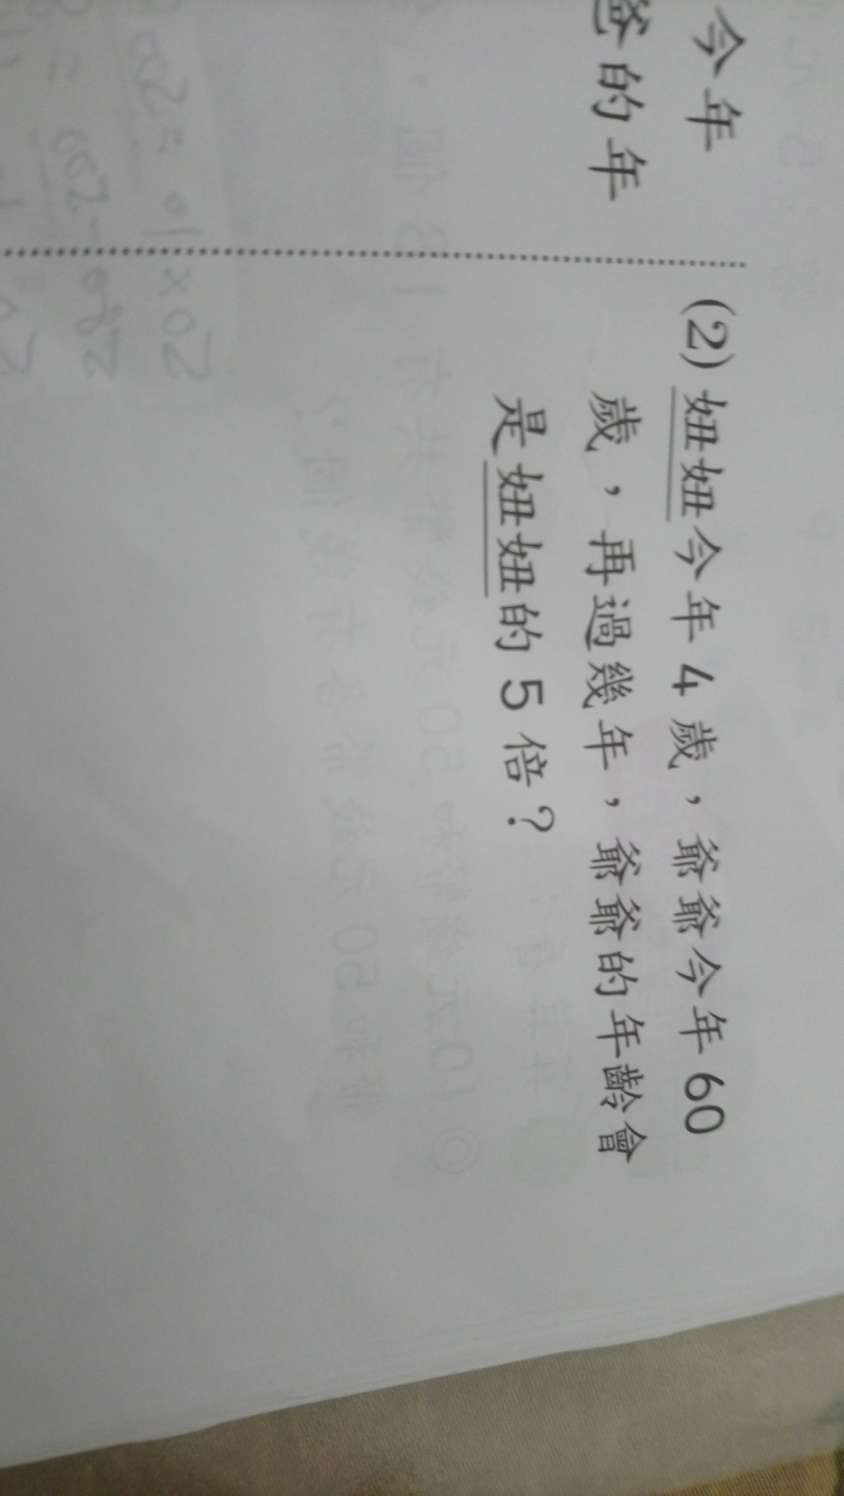 今年
爸的年
(2) 妞妞今年4歲，爺爺今年60
歲，再過幾年，爺爺的年齡會
是妞妞的5倍？